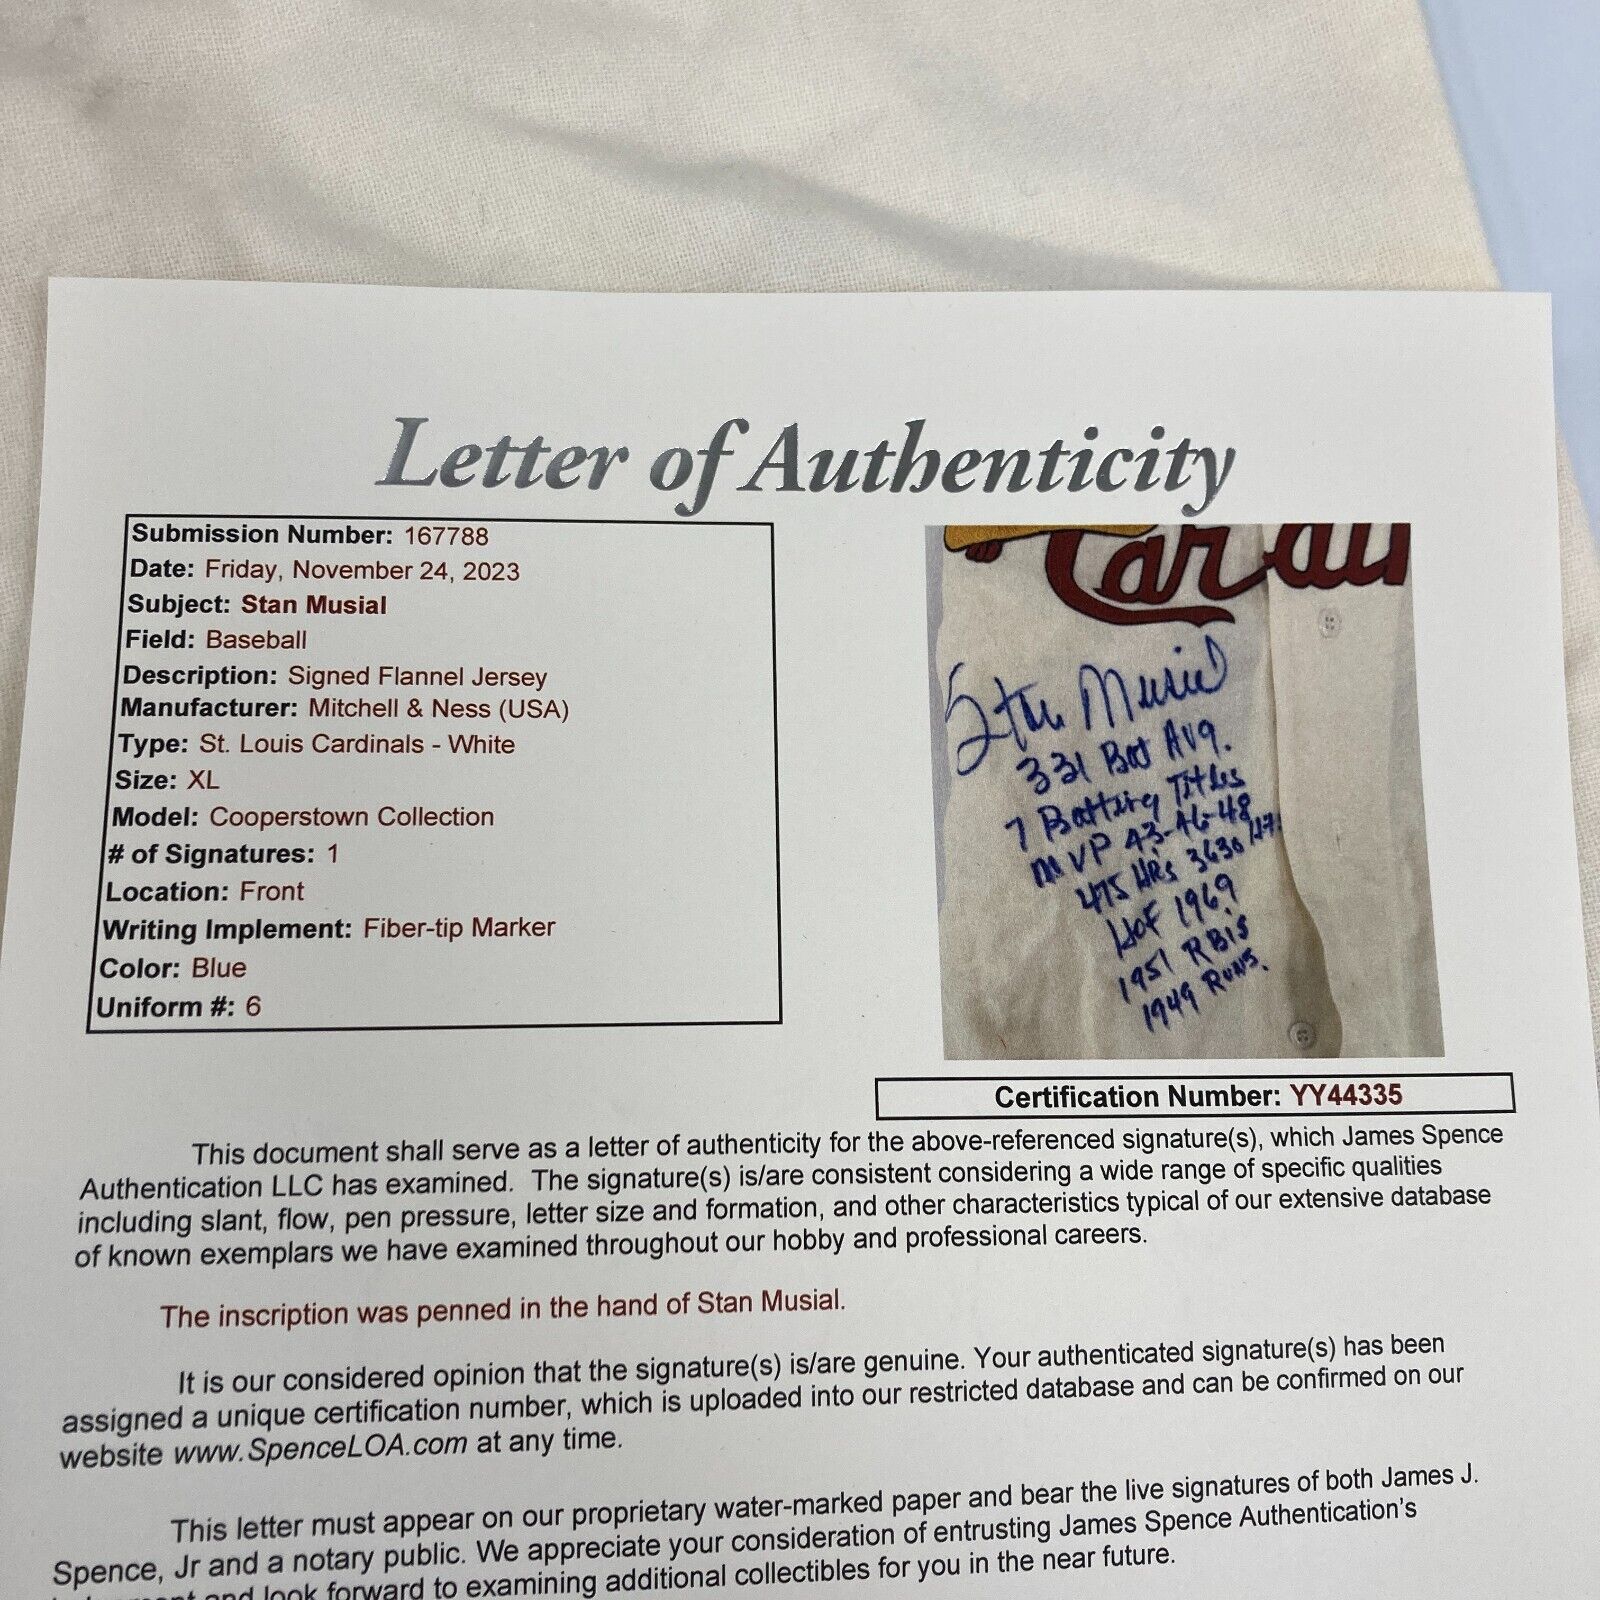 Letter of Authenticity
Submission Number: 167788
Date: Friday, November 24, 2023
Subject: Stan Musial
Field: Baseball
Description: Signed Flannel Jersey
Manufacturer: Mitchell & Ness (USA)
Type: St. Louis Cardinals - White
Size: XL
Model: Cooperstown Collection
# of Signatures: 1
Location: Front
Writing Implement: Fiber-tip Marker
Color: Blue
Uniform #: 6
Stan Musial
331 Bat Avg.
7 Batting Titles
MVP 43-46-48
475 HRs 3630
HOF 1969
1951 RBIS
1949 RUNS.
Certification Number: YY44335
This document shall serve as a letter of authenticity for the above-referenced signature(s), which James Spence
Authentication LLC has examined. The signature(s) is/are consistent considering a wide range of specific qualities
including slant, flow, pen pressure, letter size and formation, and other characteristics typical of our extensive database
of known exemplars we have examined throughout our hobby and professional careers.
The inscription was penned in the hand of Stan Musial.
It is our considered opinion that the signature(s) is/are genuine. Your authenticated signature(s) has been
assigned a unique certification number, which is uploaded into our restricted database and can be confirmed on our
website www.SpenceLOA.com at any time.
This letter must appear on our proprietary water-marked paper and bear the live signatures of both James J.
Spence, Jr and a notary public. We appreciate your consideration of entrusting James Spence Authentication's
and look forward to examining additional collectibles for you in the near future.